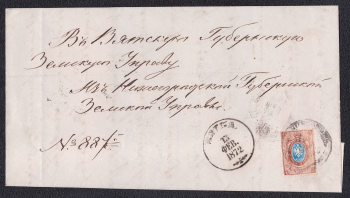 Въ Вятскую Губернскую
Земскую Управу
Изъ Нижегородской Губернской
Земской Управы.
№ 887
ФЕВ.
1872